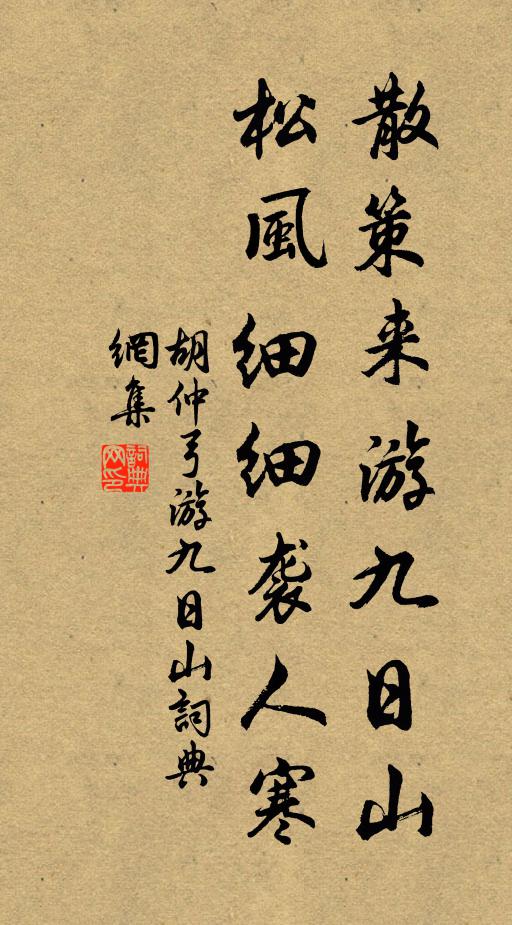 散策来游九日山
松風细细袭人寒
胡仲弓游九日山詞典
網集
詞典网印